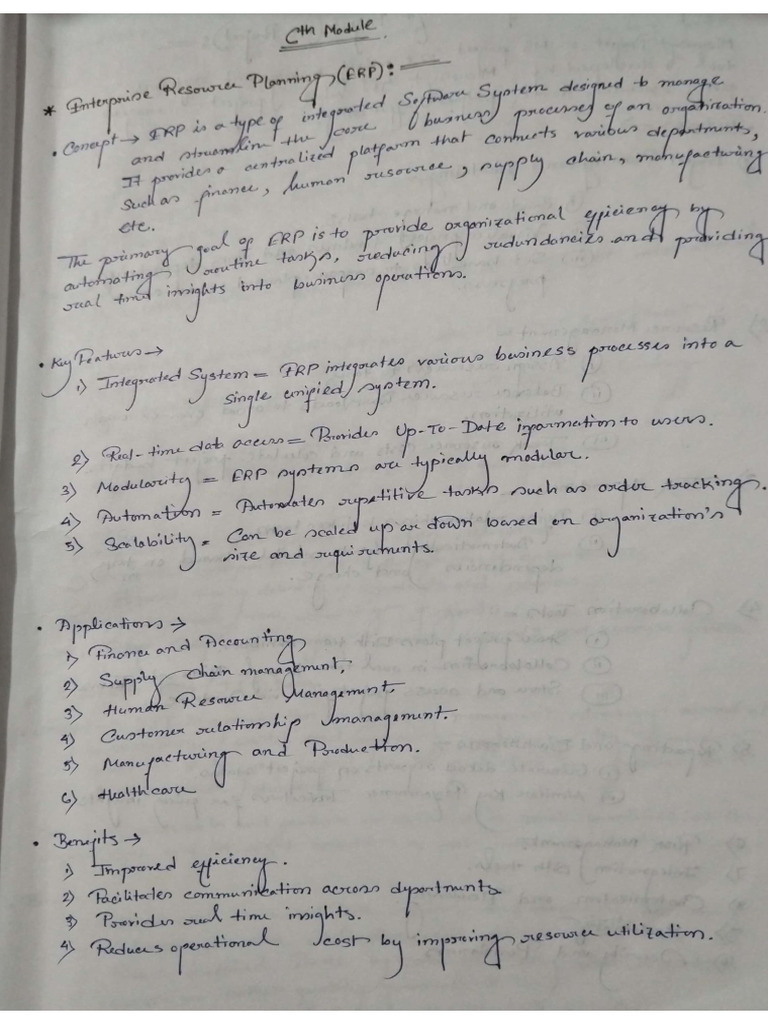 6th Module
* Enterprise Resource Planning (ERP):
• Concept → ERP is a type of integrated Software System designed to manage
and streamline the core business processes of an organization.
It provides a centralized platform that connects various departments,
such as finance, human resource, supply chain, manufacturing
etc.
The primary goal of ERP is to provide organizational efficiency by
automating routine tasks, reducing redundancies and providing
real time insights into business operations.
• Key Features →
1) Integrated System = ERP integrates various business processes into a
single unified system.
2) Real-time data access = Provides Up-To-Date information to users.
3) Modularity = ERP systems are typically modular.
4) Automation = Automates repetitive tasks such as order tracking.
5) Scalability = Can be scaled up or down based on organization's
size and requirements.
• Applications →
1) Finance and Accounting
2) Supply Chain management.
3) Human Resource Management.
4) Customer relationship management.
5) Manufacturing and Production.
6) Healthcare
• Benefits →
1) Improved efficiency.
2) Facilitates communication across departments
3) Provides real time insights.
4) Reduces operational cost by improving resource utilization.